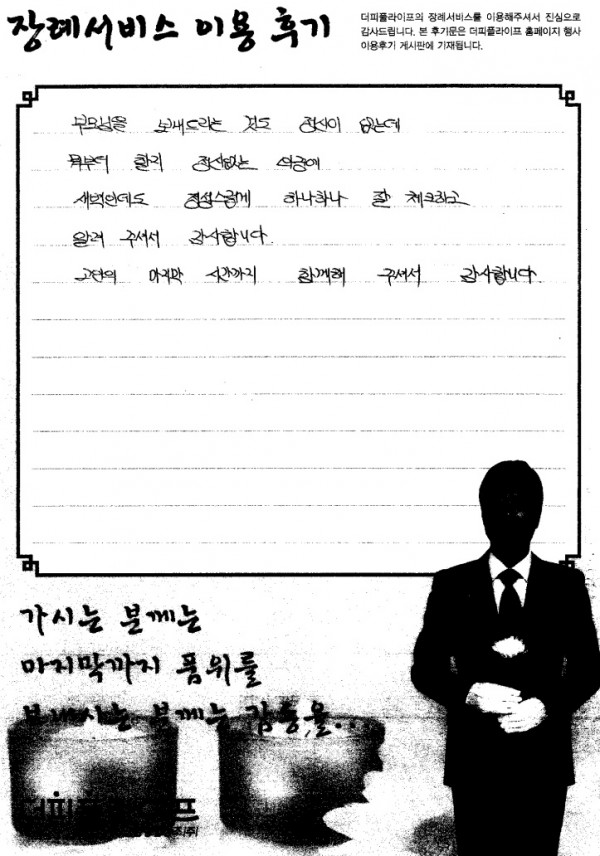 장례서비스 이용 후기
더피플라이프의 장례서비스를 이용해주셔서 진심으로
감사드립니다. 본 후기문은 더피플라이프 홈페이지 행사
이용후기 게시판에 기재됩니다.
부모님을 보내드리는 것도 정신이 없는데
정신없는 와중에
새벽인데도 정성스럽게 하나하나 잘 체크하고
알려 주셔서 감사합니다.
고인의 마지막 시간까지 함께해 주셔서 감사합니다.
가시는 분께는
마지막까지 품위를
보내시는 분께는 감동을..
더피플라이프